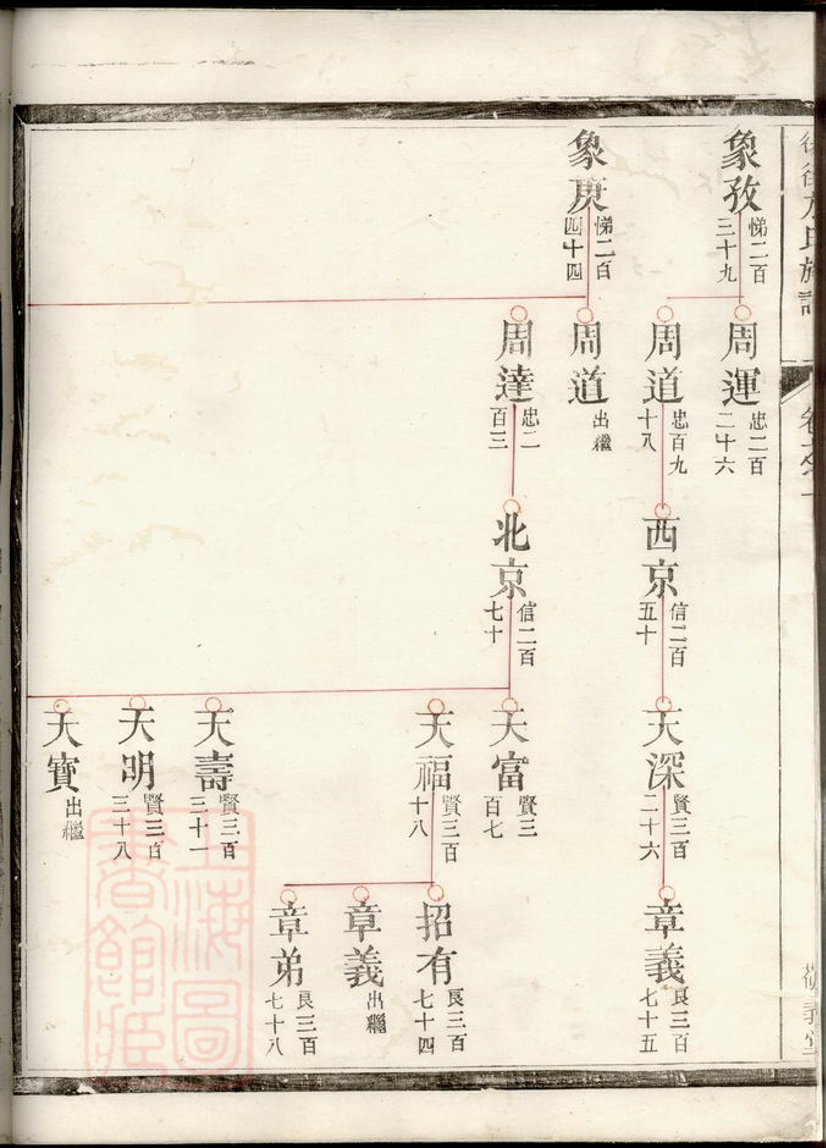 方氏族譜
卷之一
義堂
象孜 悌二百三十九
象庚 悌二百四十四
周運 忠二百二十六
周道 忠百九十八
周道 出繼
周達 忠二百三
西京 信二百五十
北京 信二百七十
天深 賢三百二十六
天富 賢三百七
天福 賢三百十八
天壽 賢三百三十一
天明 賢三百三十八
天寶 出繼
章義 良三百七十五
招有 良三百七十四
章義 出繼
章弟 良三百七十八
上海圖書館藏